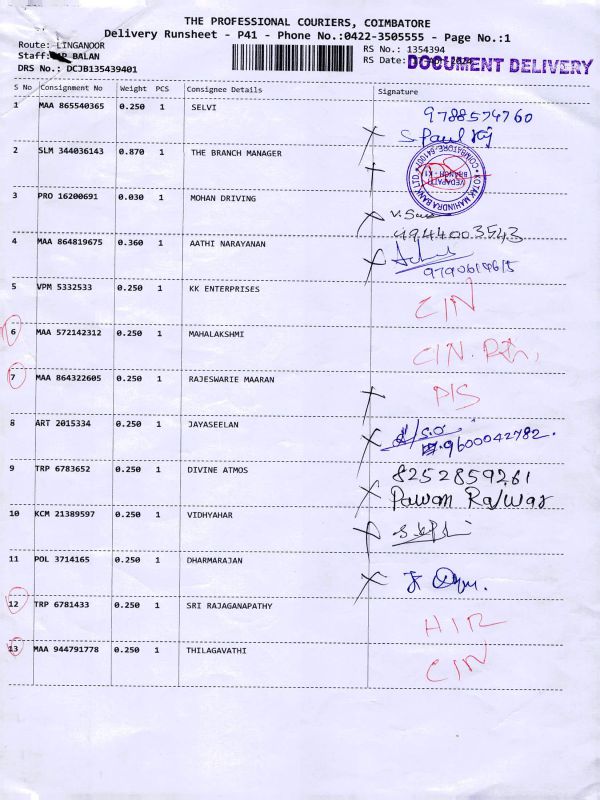 THE PROFESSIONAL COURIERS, COIMBATORE
Delivery Runsheet - P41 - Phone No.:0422-3505555 - Page No.:1
Route: LINGANOOR
RS No.: 1354394
Staff: BALAN
RS Date:
DOCUMENT DELIVERY
DRS No.: DCJB135439401
S No Consignment No Weight PCS Consignee Details Signature
1 MAA 865540365 0.250 1 SELVI 9788574760
2 SLM 344036143 0.870 1 THE BRANCH MANAGER KOTAK MAHINDRA BANK LTD
3 PRO 16200691 0.030 1 MOHAN DRIVING
9944003543
4 MAA 864819675 0.360 1 AATHI NARAYANAN
5 VPM 5332533 0.250 1 KK ENTERPRISES CIN
6 MAA 572142312 0.250 1 MAHALAKSHMI CIN.
7 MAA 864322605 0.250 1 RAJESWARIE MAARAN P/S
8 ART 2015334 0.250 1 JAYASEELAN
9600042782.
9 TRP 6783652 0.250 1 DIVINE ATMOS 8252859261
Pawan Rajwar
10 KCM 21389597 0.250 1 VIDHYAHAR
11 POL 3714165 0.250 1 DHARMARAJAN
12 TRP 6781433 0.250 1 SRI RAJAGANAPATHY
13 MAA 944791778 0.250 1 THILAGAVATHI CIN